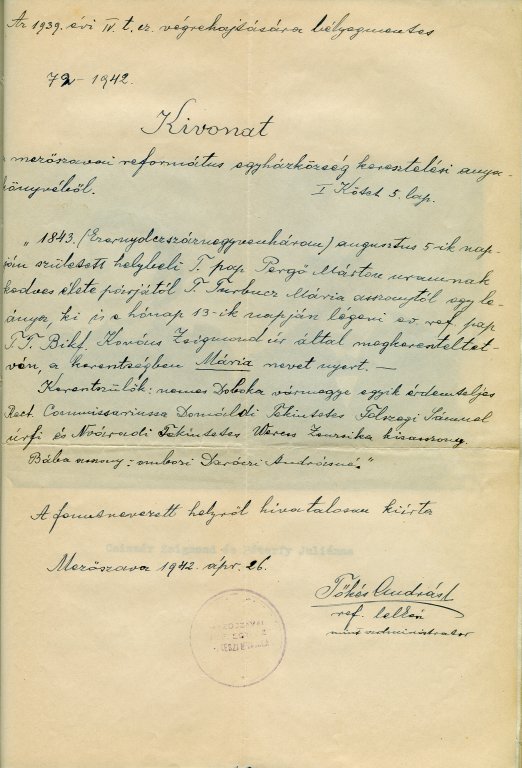 Az 1939. évi IV. t. cz. végrehajtására bélyegmentes
79 - 1942.
Kivonat
a mezőszavai református egyházközség keresztelési anya-
könyvéből. I Kötet 5. lap.
„1843. (Ezernyolczszáznegyvenhárom) augusztus 5-ik nap-
ján született helybeli T. pap Pergő Márton uramnak
kedves élete párjától T. Turbucz Mária asszonytól egy le-
ánya, ki is e hónap 13-ik napján légeni ev. ref. pap
T.T. Bikf. Kovács Zsigmond úr által megkereszteltet-
vén, a keresztségben Mária nevet nyert. —
Keresztszülők: nemes Doboka vármegye egyik érdemteljes
Rect. Commissariussa Domáldi Tekintetes Földszegi Sámuel
úrfi és Tekintetes Veress kisasszony.
Bába asszony: ombozi Daróczi Andrásné."
A fennnevezett helyről hivatalosan kiírta
Mezőszava 1942. ápr. 26.
Tőkés András
ref. lelkész
mint adminisztrator